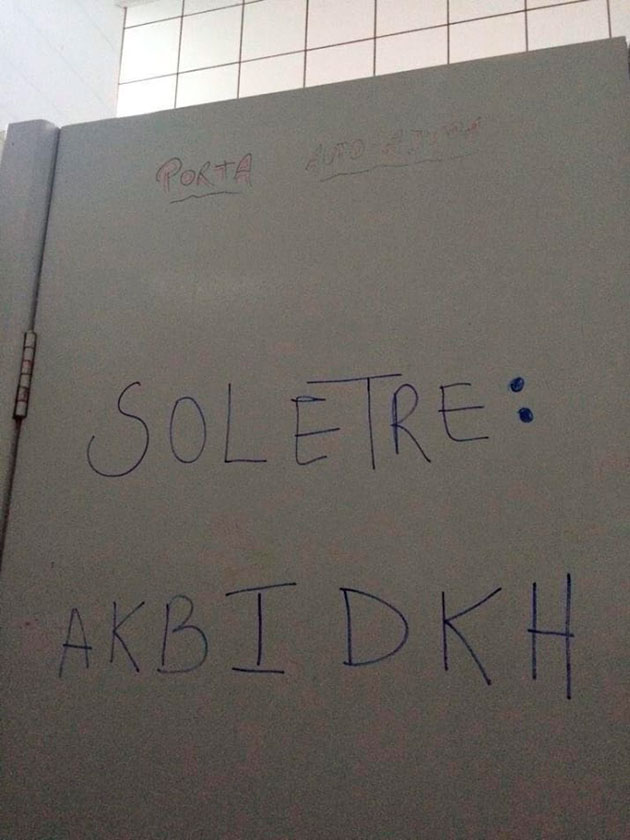 PORTA AUTO-AJUDA
SOLETRE:
AKBIDKH